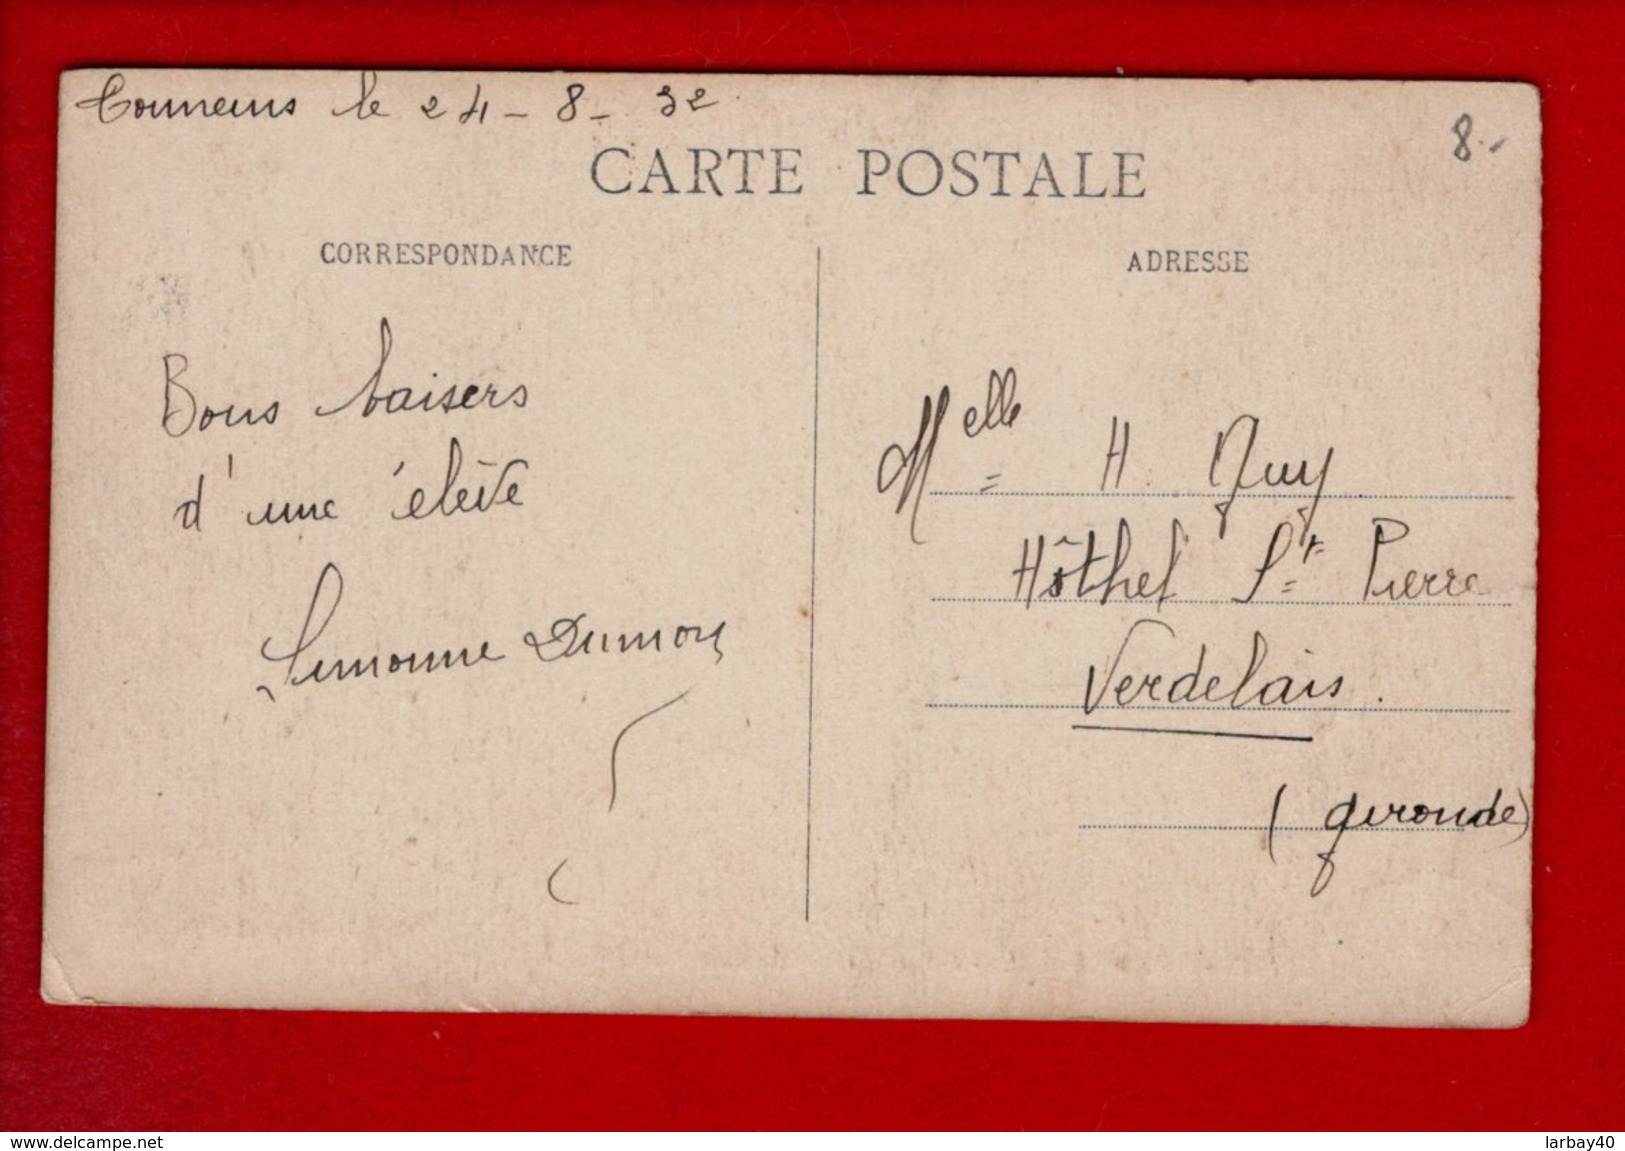 Tonneins le 24-8-32
8.-
CARTE POSTALE
CORRESPONDANCE
ADRESSE
Bons baisers
d'une élève
Simonne Dumon
Melle H. Guy
Hôthel St Pierre
Verdelais.
(gironde)
www.delcampe.net
larbay40